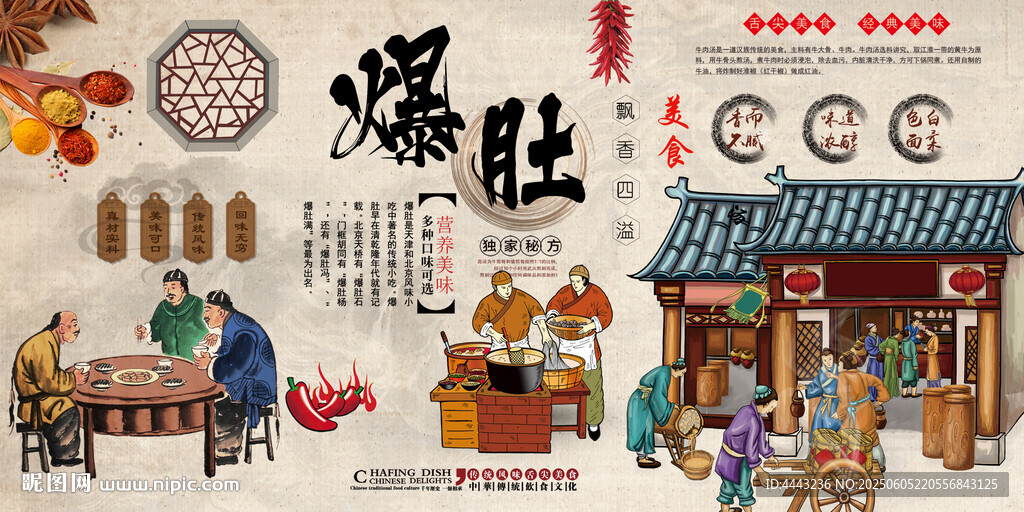 舌尖美食 经典美味
牛肉汤是一道汉族传统的美食,主料有牛大骨、牛肉。牛肉汤选料讲究,取江淮一带的黄牛为原
料,用牛骨头熬汤,煮牛肉时必须浸泡,除去血污,内脏清洗干净,方可下锅同煮,还用自制的
牛油,将炸制好淮椒(红干椒)做成红油。
爆肚
飘香四溢
美食
香而
不腻
味道
浓醇
色白
面柔
真材实料
美味可口
传统风味
回味无穷
【营养美味
多种口味可选】
爆肚是天津和北京风味小
吃中著名的传统小吃。爆
肚早在清乾隆年代就有记
载。北京天桥有“爆肚石
”、门框胡同有“爆肚杨
”,还有“爆肚冯”、“
爆肚满”等最为出名。
独家秘方
CHAFING DISH
CHINESE DELIGHTS
Chinese traditional food culture 千年历史 一脉相承
传统风味舌尖美食
中華傳統飲食文化
昵图网 www.nipic.com
ID:4443236 NO:20250605220556843125